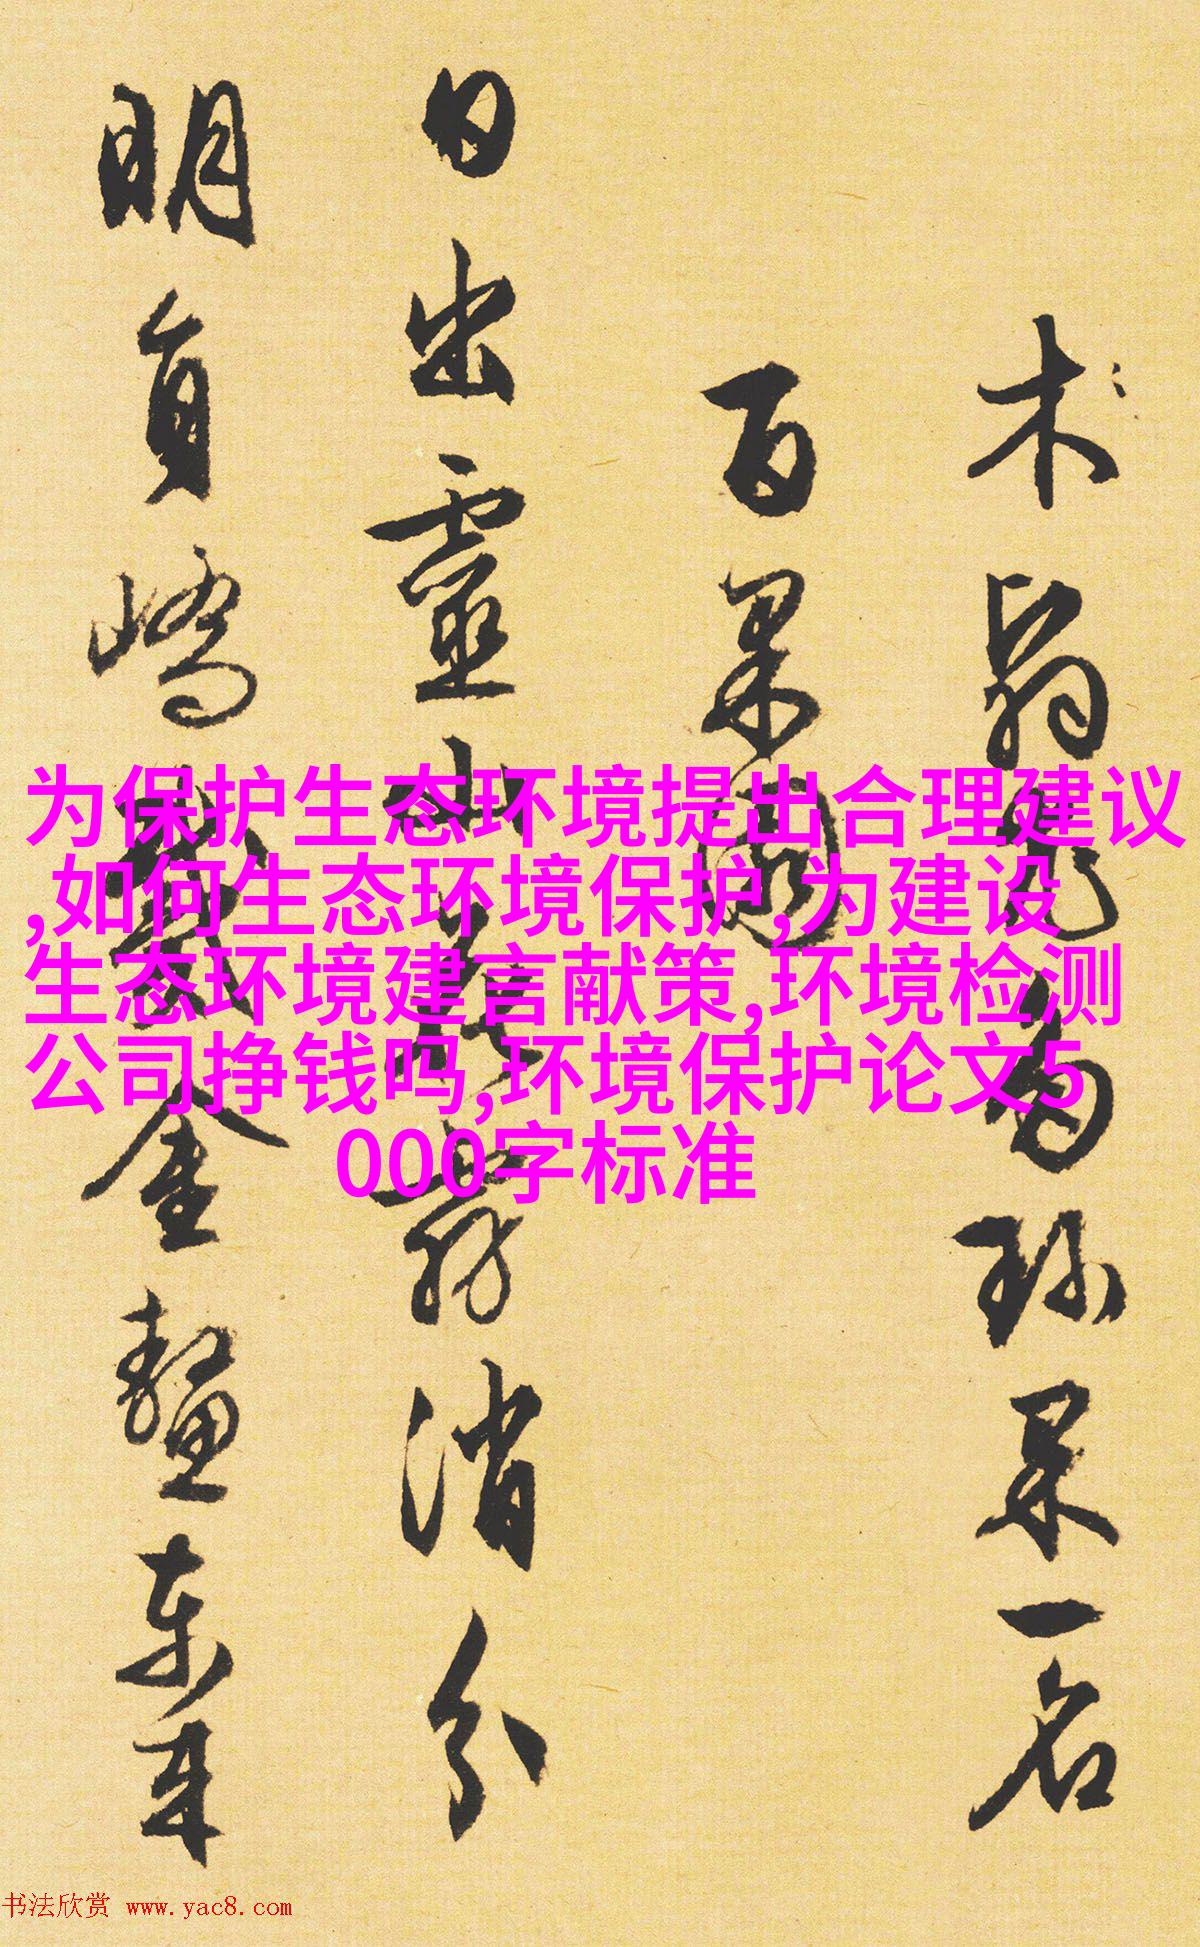 木弱花為珎果一名
百果園
日出靈山花霧消分
明貟嶠戴金鼇東来
为保护生态环境提出合理建议
,如何生态环境保护,为建设
生态环境建言献策,环境检测
公司挣钱吗,环境保护论文5
000字标准
书法欣赏 www.yac8.com